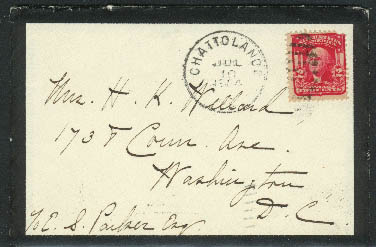 CHATTOLANEE
JUL
Mrs. H. K. Willard
173 Conn. Ave.
Washington
D. C.
E. S. Parker Esq